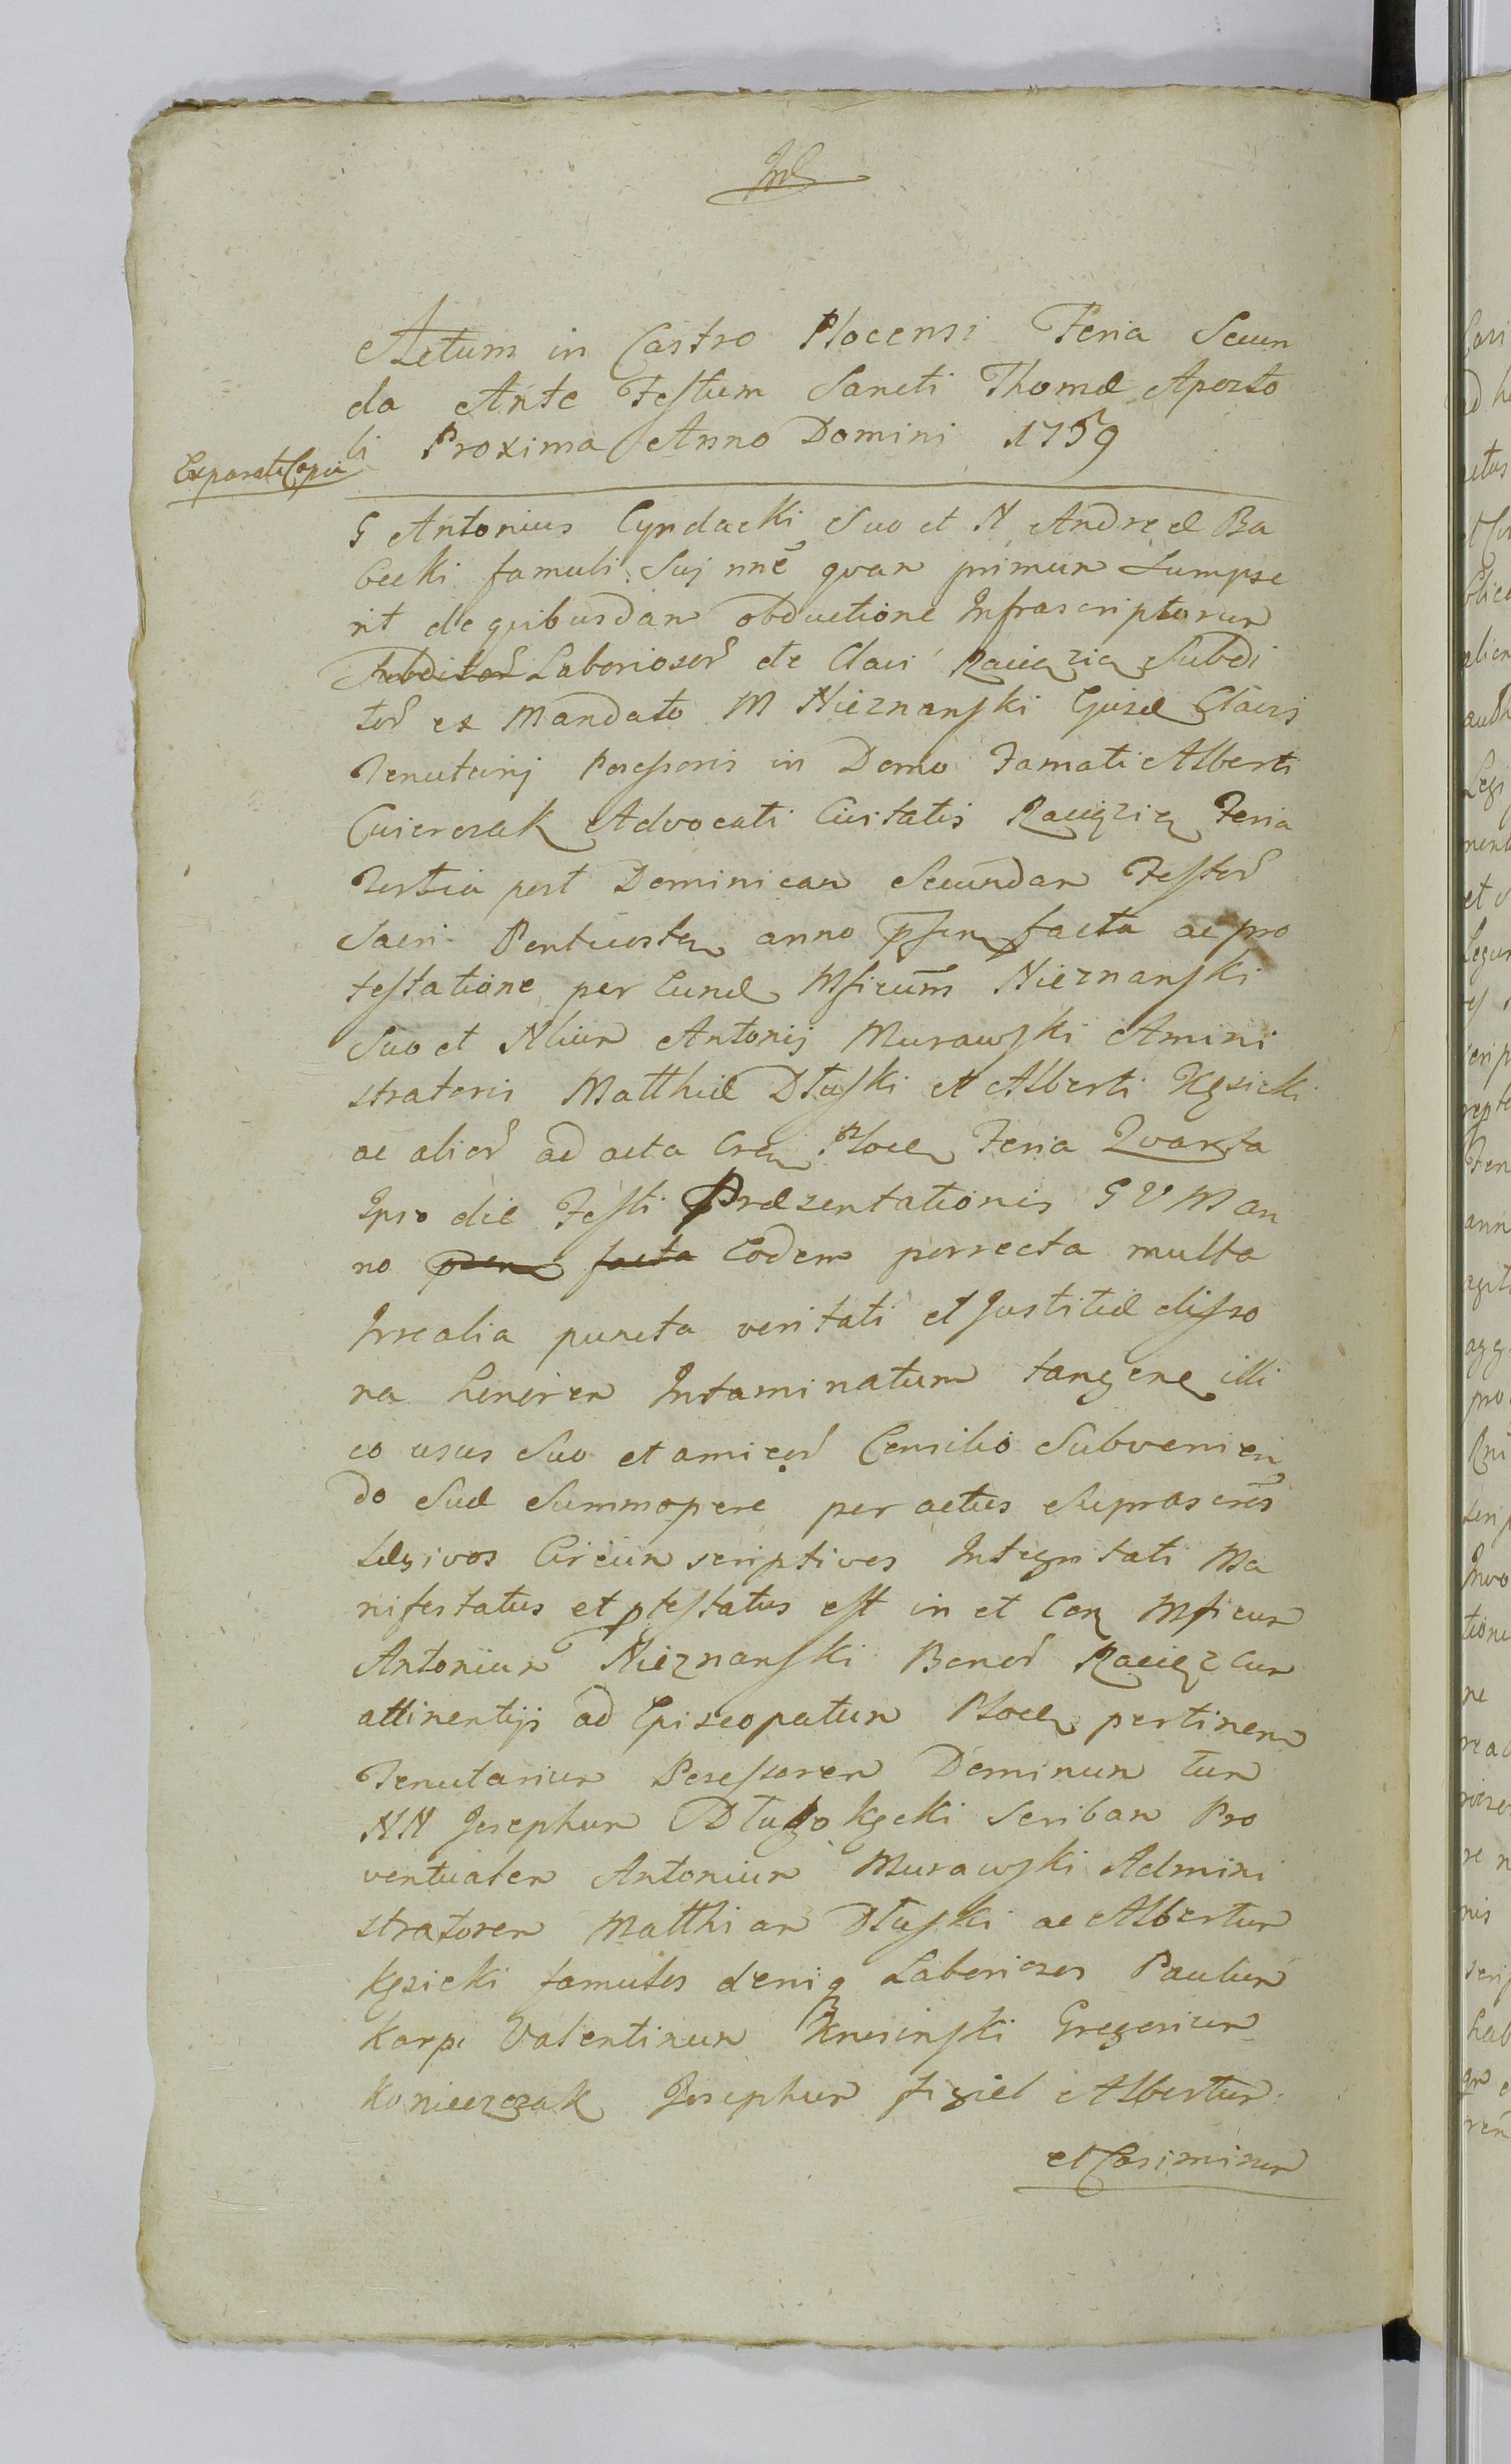 Actum in Castro Plocensi Feria Secun
da Ante Festum Sancti Thomæ Aposto
li Proxima Anno Domini 1759
Exparata Copia
G Antonius Cyndacki Suo et N Andreæ Ba
becki famuli Sui nnẽ quan primun Sumpse
rit de quibusdan obductione Infrascriptorun
Subditor Laboriosor de Clavi Raciąziẽ Subdi
tor ex Mandato M Nieznanski Ejusd Clavis
Tenutarij Possessoris in Domo Famati Alberti
Cwierczak Advocati Civitatis Raciąziẽ Feria
Tertia post Dominican Secundan Festor
Sacri Pentecostes anno psen facta ac pro
testatione per Eund Mficum Nieznanski
Suo et Nliun Antonij Murawski Amini
stratoris Matthiæ Dłuski et Alberti Kęsicki
ac alior ad acta Cren Plocen Feria Quarta
Ipso die Festi Præsentationis G V M an
no psen facta Eodem porrecta multa
Irrealia puncta veritati et Justitiæ disso
na honoren Intaminatum tangene illi
co usus Suo et amicor Consilio Subvenien
do Suæ Summopere per actus Suprascrẽs
Læsivos Circunscriptivos Integritati Ma
nifestatus et ptestatus est in et Con Mficun
Antoniun Nieznanski Bonor Raciąz cun
attinentijs ad Episcopatun Plocen pertinen
Tenutariun Possessoren Dominun tun
NN Josephun Długokęcki Scriban Pro
ventualen Antoniun Murawski Admini
stratoren Matthian Dłuski ac Albertun
Kęsicki famulos deniq Laboriosos Paulun
Karp Valentinun Krusinski Gregoriun
Konieczczak Josephun figiel Albertun
et Casimirun